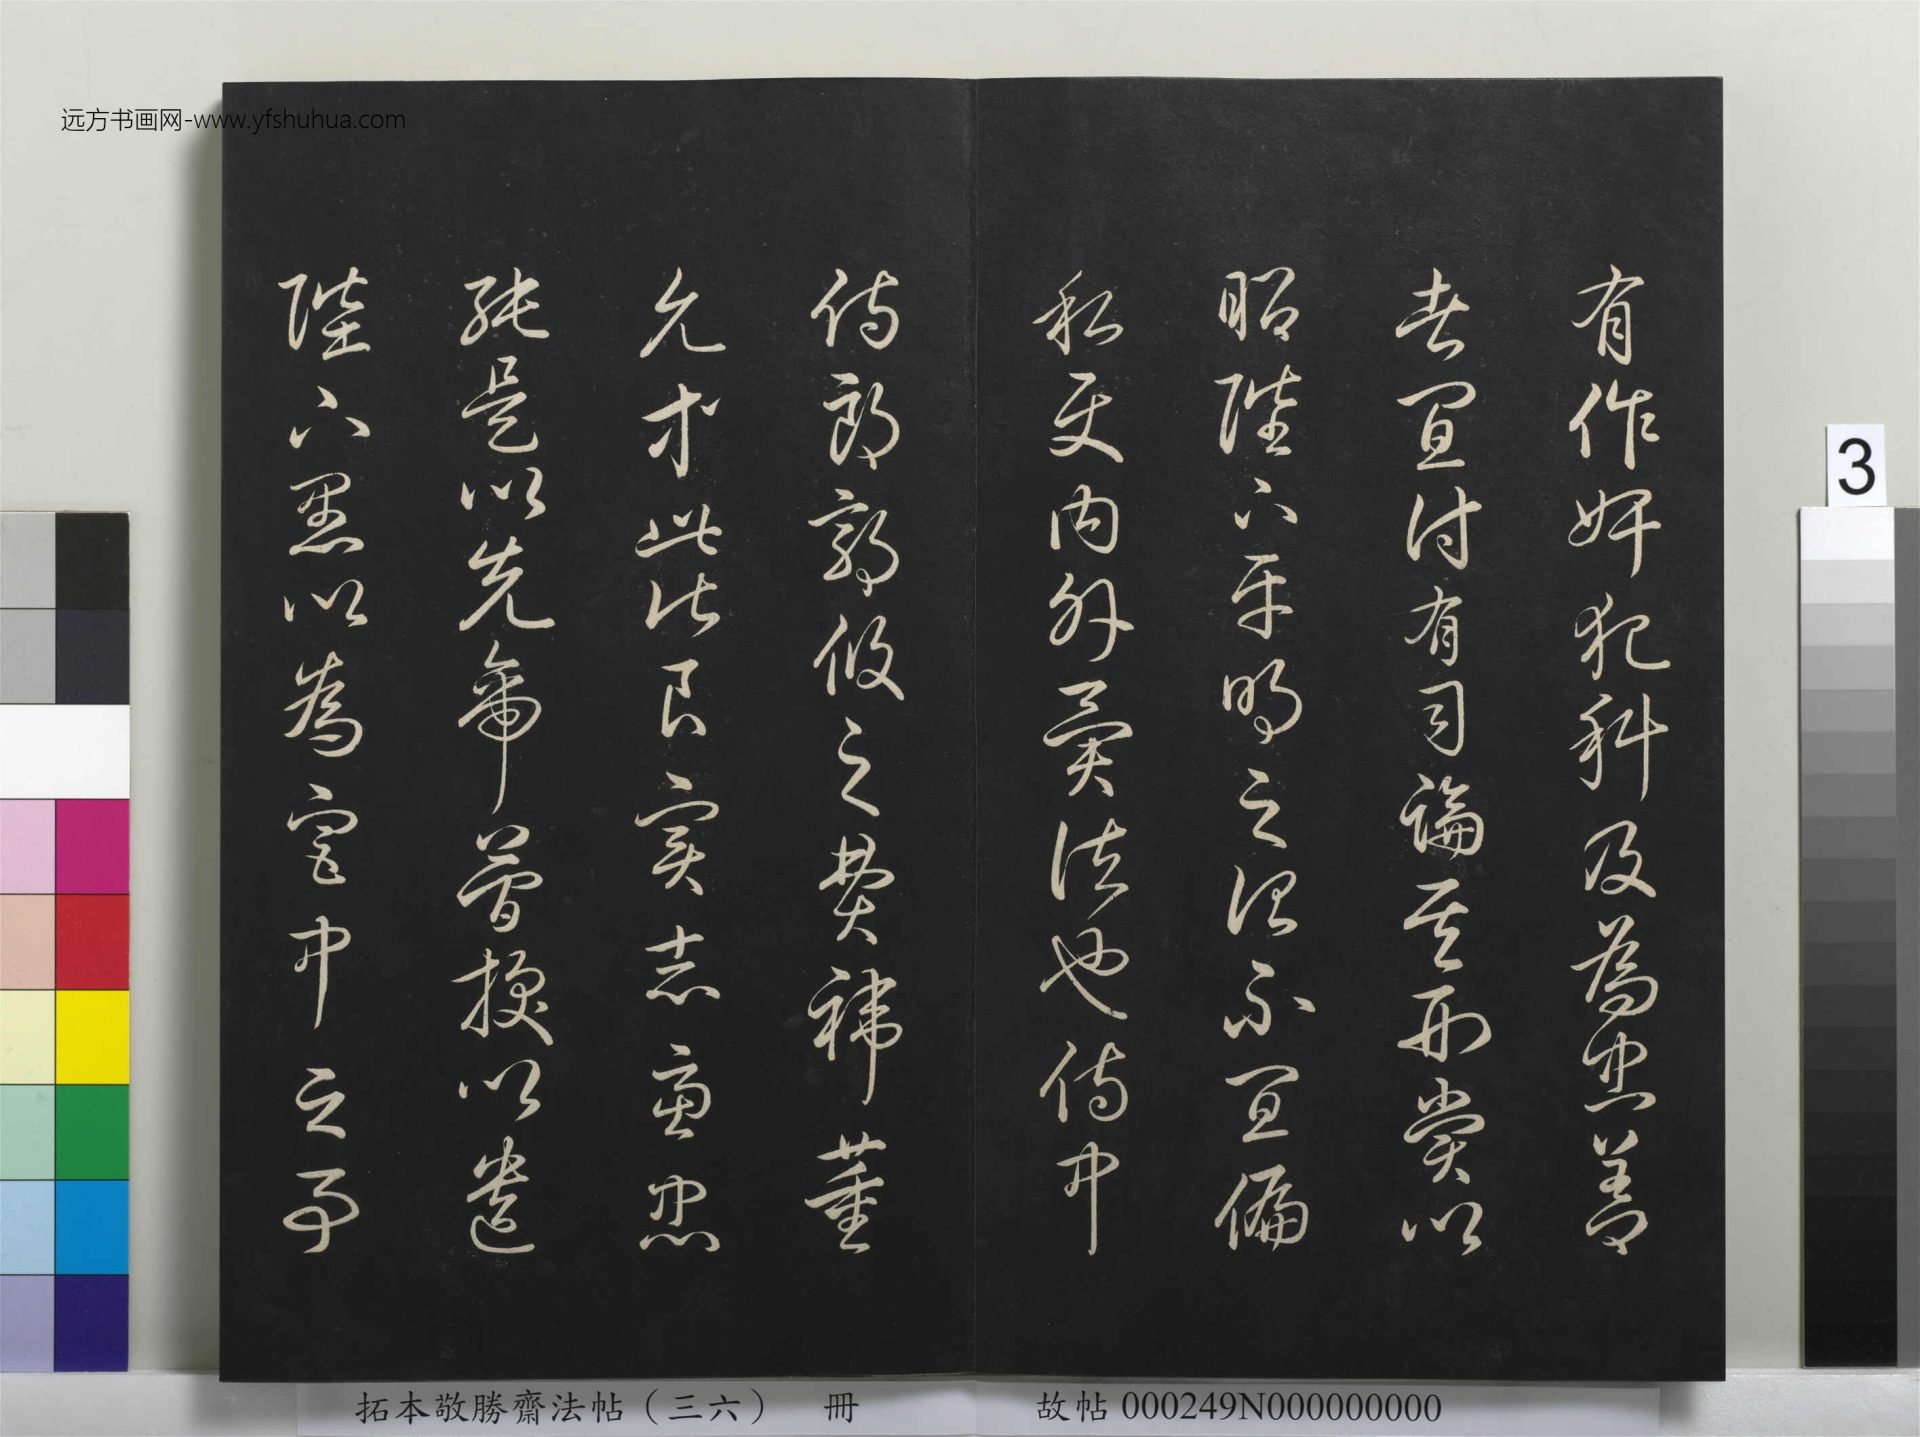 远方书画网-www.yfshuhua.com
有作奸犯科及為忠善
者宜付有司論其刑賞以
昭陛下平明之治不宜偏
私使内外異法也侍中
侍郎郭攸之費禕董
允才此比良實志慮忠
純是以先帝簡拔以遺
陛下愚以為宮中之事
3
拓本敬勝齋法帖（三六） 冊
故帖 000249N000000000